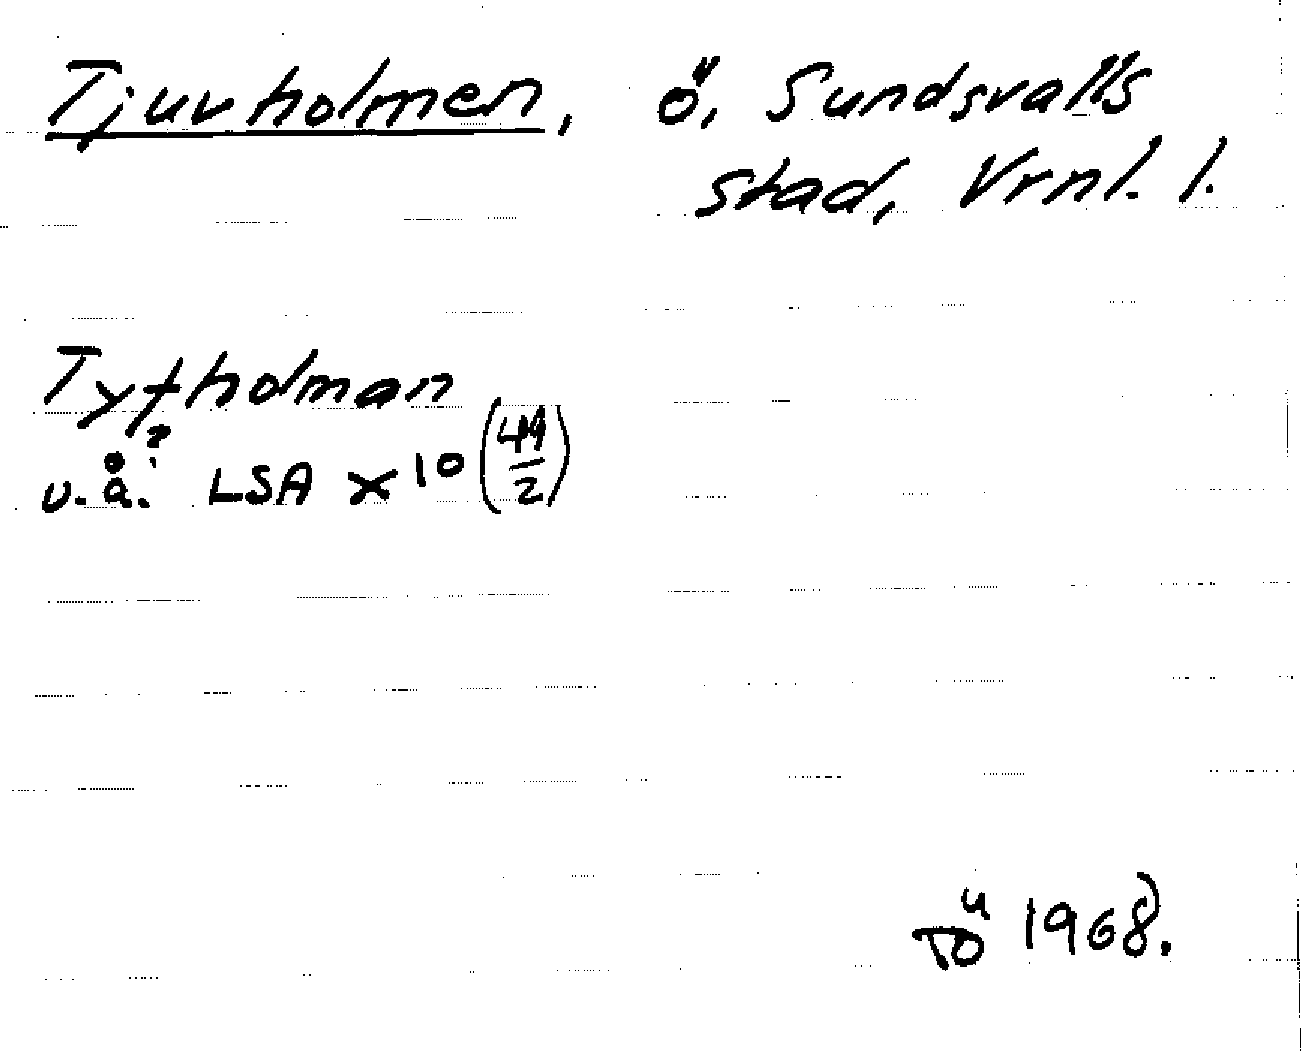 Tjuvholmen, ö, Sundsvalls
stad, Vrnl. l.
Tyfholman
u.å.? LSA x 10 (44/2)
Tö 1968.